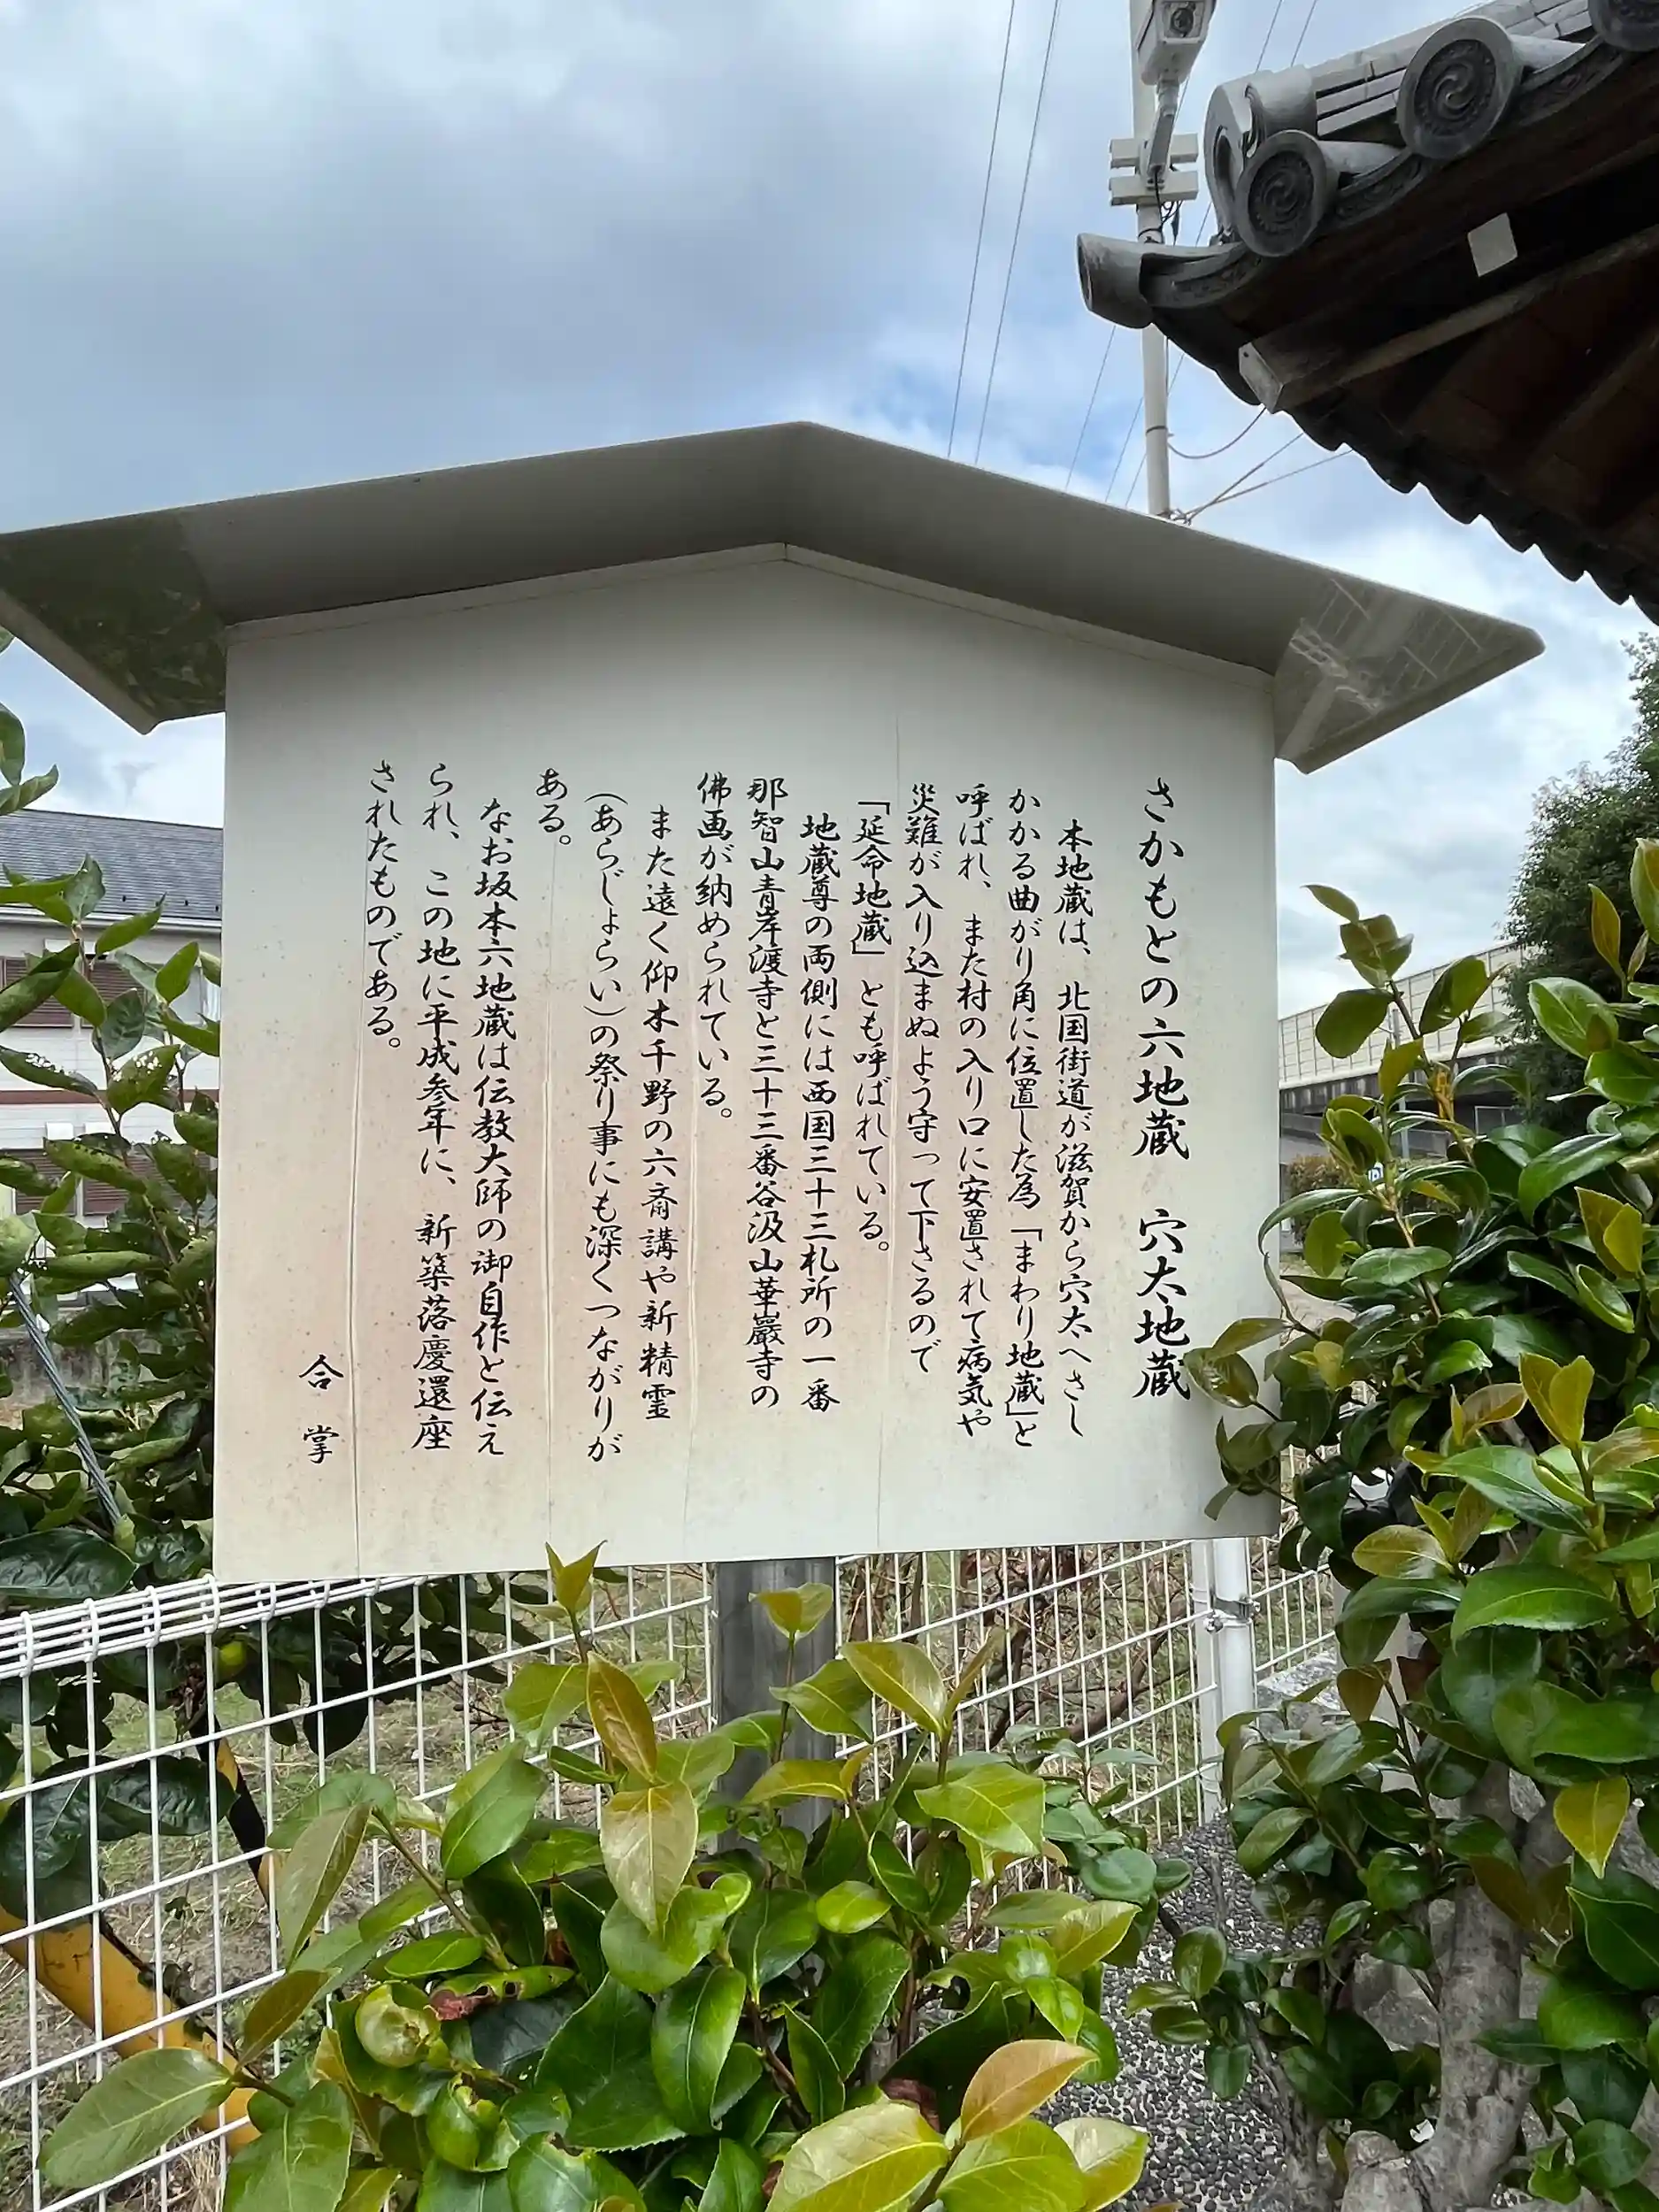 さかもとの六地蔵　穴太地蔵
本地蔵は、北国街道が滋賀から穴太へさし
かかる曲がり角に位置した為「まわり地蔵」と
呼ばれ、また村の入り口に安置されて病気や
災難が入り込まぬよう守って下さるので
「延命地蔵」とも呼ばれている。
地蔵尊の両側には西国三十三札所の一番
那智山青岸渡寺と三十三番谷汲山華巖寺の
佛画が納められている。
また遠く仰木千野の六斎講や新精霊
（あらじょらい）の祭り事にも深くつながりが
ある。
なお坂本六地蔵は伝教大師の御自作と伝え
られ、この地に平成参年に、新築落慶還座
されたものである。
合掌